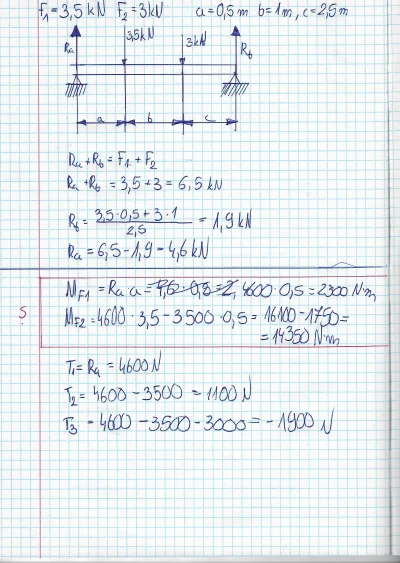 F1=3,5kN F2=3kN a=0,5m b=1m, c=2,5m
Ra 3,5kN 3kN Rb
a b c
Ra+Rb=F1+F2
Ra+Rb=3,5+3=6,5kN
Rb=3,5·0,5+3·1/2,5=1,9kN
Ra=6,5-1,9-4,6kN
MF1=Ra·a=4600·0,5=2300N·m
5 MF2=4600·3,5-3500·0,5=16100-1750=
=14350N·m
T1=Ra=4600N
T2=4600-3500=1100N
T3-4600-3500-3000=-1900N